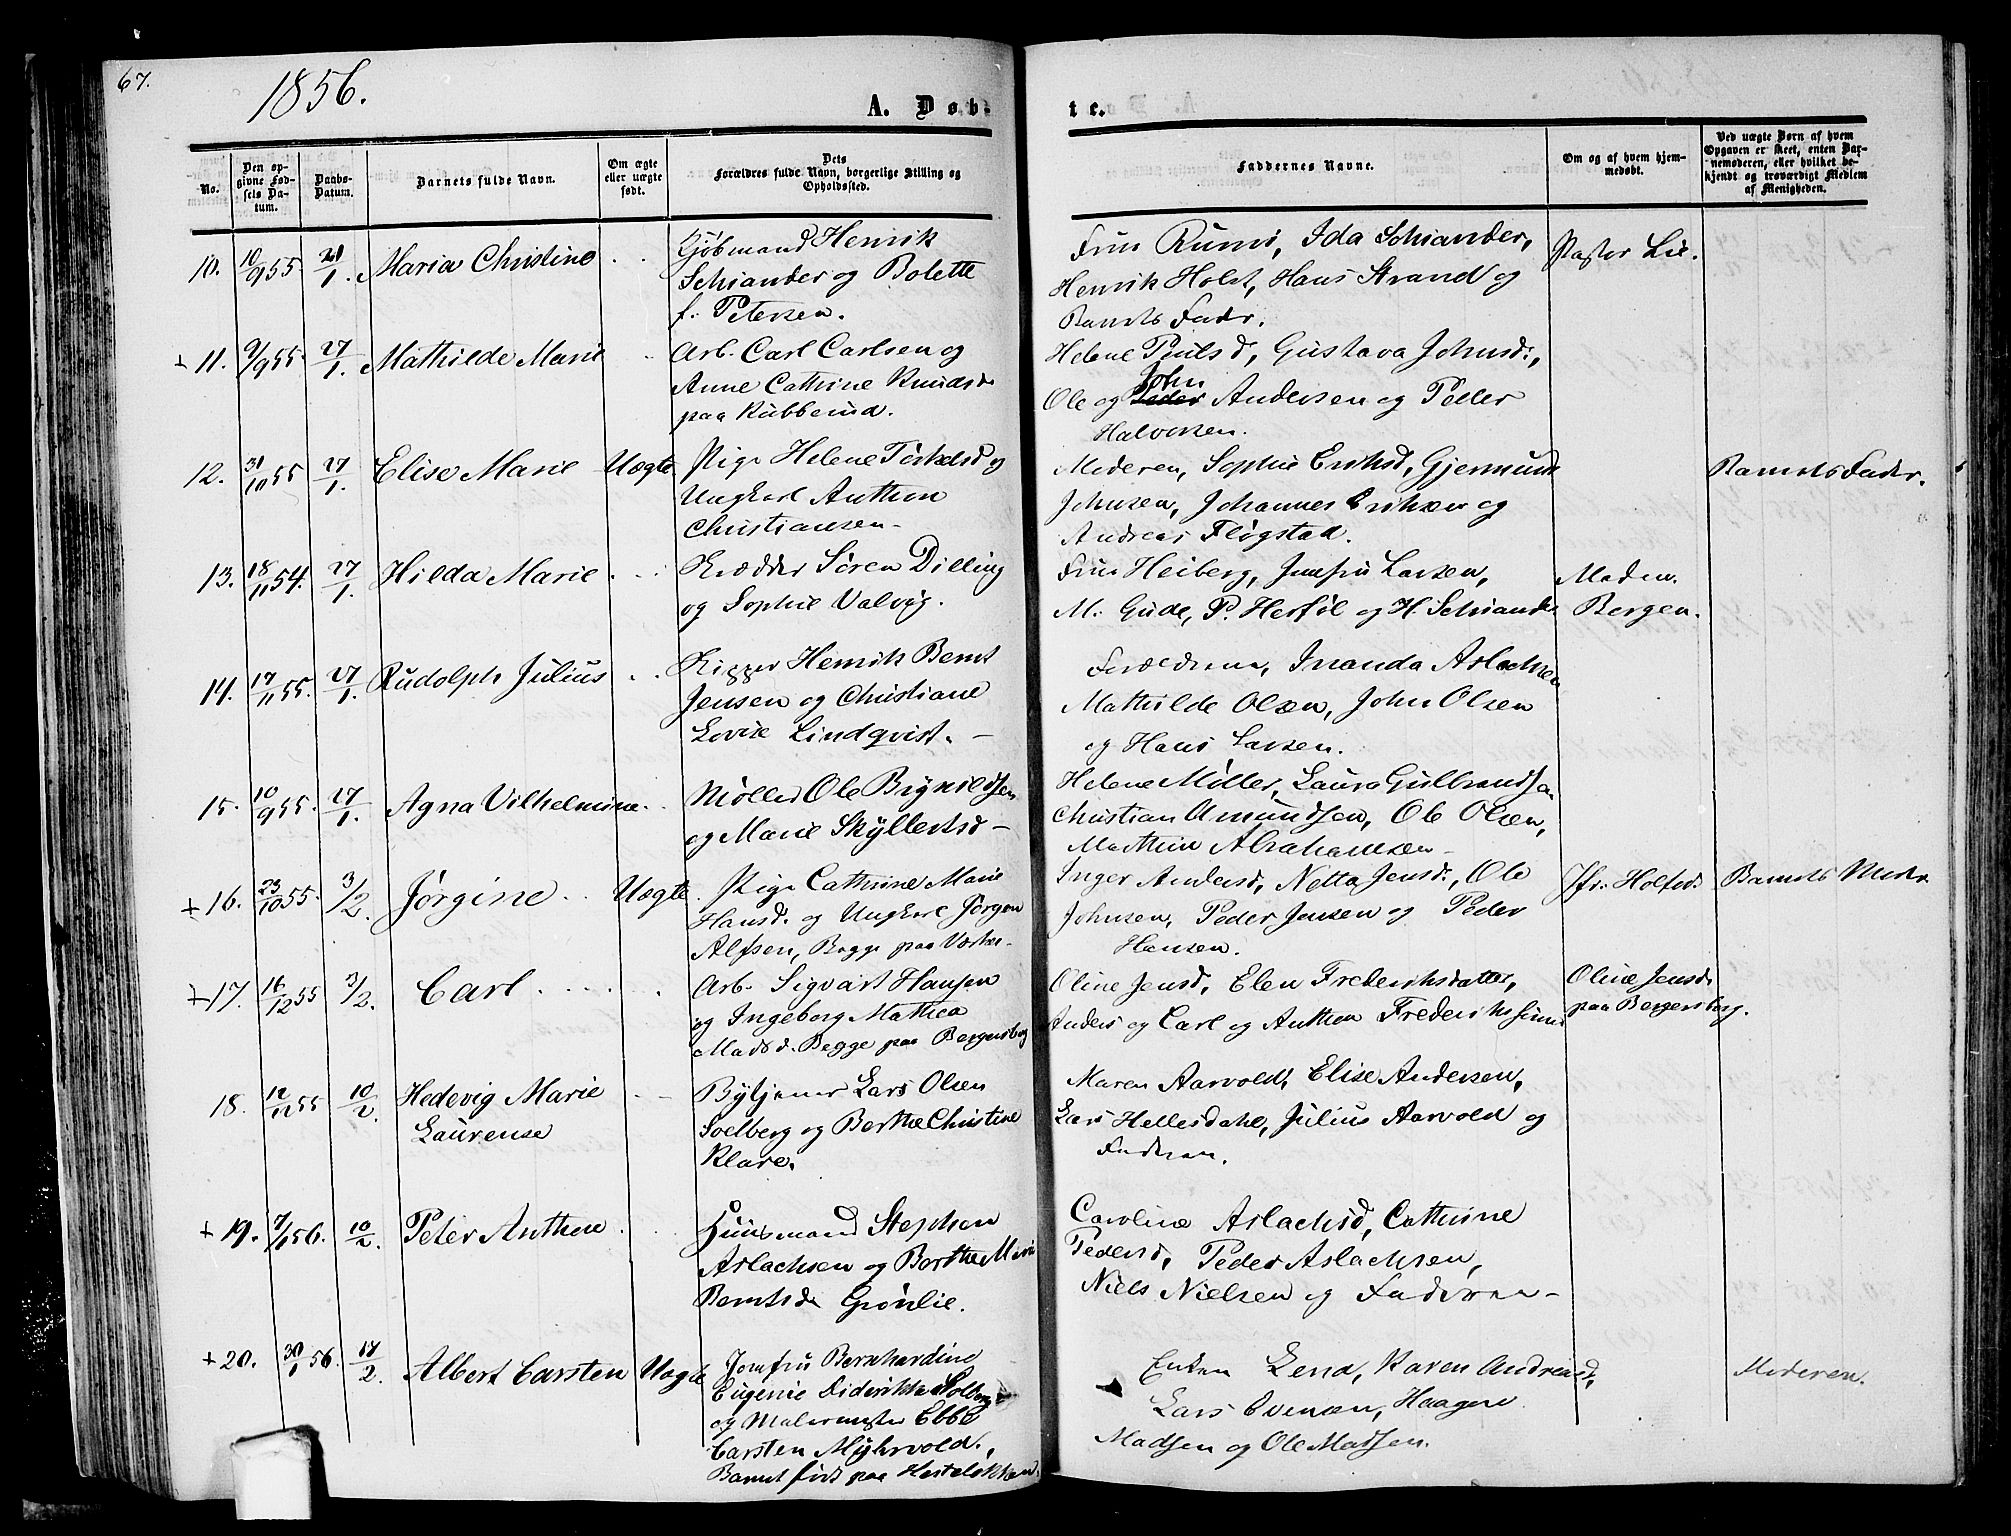 67.
1856.
A. Døb-
te.
No.
Den op-
givne Fød-
sels Da-
tum.
Daabs-
Datum.
Barnets fulde Navn.
Om ægte
eller uægte
født.
Dets
Forældres fulde Navn, borgerlige Stilling og
Opholdssted.
Faddernes Navne.
Om og af hvem hjem-
medøbt.
Ved uægte Børn af hvem
Opgaven er skeet, enten Bar-
nemoderen, eller hvilket be-
kjendt og troværdigt Medlem
af Menigheden.
10. 10/9 55 21/1. Maria Christine
Kjøbmand Henrik
Schiander og Bolette
f. Petersen.
Fru Rumi, Ida Schiander,
Henrik Holst, Hans Strand og
Barnets Fader.
Pastor Lie.
+ 11. 9/9 55 27/1. Mathilde Marie
Arb. Carl Carlsen og
Anne Cathrine Knudsd
paa Kubberud.
Helene Paulsd, Gustava Johnsd.,
John
Ole og Peder Andersen og Peder
Halvorsen.
12. 31/10 55 27/1. Elise Marie Uægte
Pige Helene Torkelsd og
Ungkarl Anthon
Christiansen -
Moderen, Sophie Eriksd, Gjermund
Johnsen, Johannes Eriksen og
Andreas Fløgstad.
Barnets Fader.
13. 18/11 54. 27/1. Hilda Marie
Søren Dilling
og Sophie Valvig.
Fru Heiberg, Jomfru Larsen,
M. Gude, P. Herføl og H. Schiander
Madm.
Bergen.
14. 17/11 55. 27/1. Rudolph Julius
Rigger Henrik Bernt
Jensen og Christiane
Lovise Lindqvist. -
Forældrene, Inanda Aslachsen
Mathilde Olsen, John Olsen
og Hans Larsen.
15. 10/9 55. 27/1. Agna Vilhelmine
Møller Ole Brynildsen
og Marie Skyllertsd -
Helene Møller, Laura Gulbrandsen
Christian Amundsen, Ole Olsen,
Mathias Abrahamsen -
+ 16. 23/10 55. 3/2. Jørgine Uægte
Pige Cathrine Marie
Hansd. og Ungkarl Jørgen
Alfsen, Begge paa
Inger Andersd, Netta Jensd., Ole
Johnsen, Peder Jensen og Peder
Hansen.
Jfr.
Barnets Moder
+ 17. 16/12 55 3/2. Carl
Arb. Sigvart Hansen
og Ingeborg Mathea
Madsd. Begge paa Bergersborg
Oline Jensd, Elen Frederiksdatter,
Anders og Carl og Anthon Frederiksens
Oline Jensd.
paa Bergersborg.
18. 12/11 55 10/2. Hedevig Marie
Laurense
Bytjener Lars Olsen
Solberg og Berthe Christine
Klare.
Maren Aarvold, Elise Andersen,
Lars Hellesdahl, Julius Aarvold og
Faderen.
+ 19. 7/1 56. 10/2. Peter Anthon
Huusmand Stephen
Aslachsen og Berthe Marie
Berntsd. Grønlie.
Caroline Aslachsd, Cathrine
Pedersd, Peder Aslachsen,
Niels Nielsen og Faderen -
+ 20. 30/1 56. 17/2. Albert Carsten Uægte
Jomfru Bernhardine
Eugenie Diderikke Solberg
og Malermester Ebbe
Carsten Myhrvold.,
Barnet født paa
Enken Lena, Karen Andreasd,
Lars Evensen, Haagen
Madsen og Ole Madsen.
Moderen.